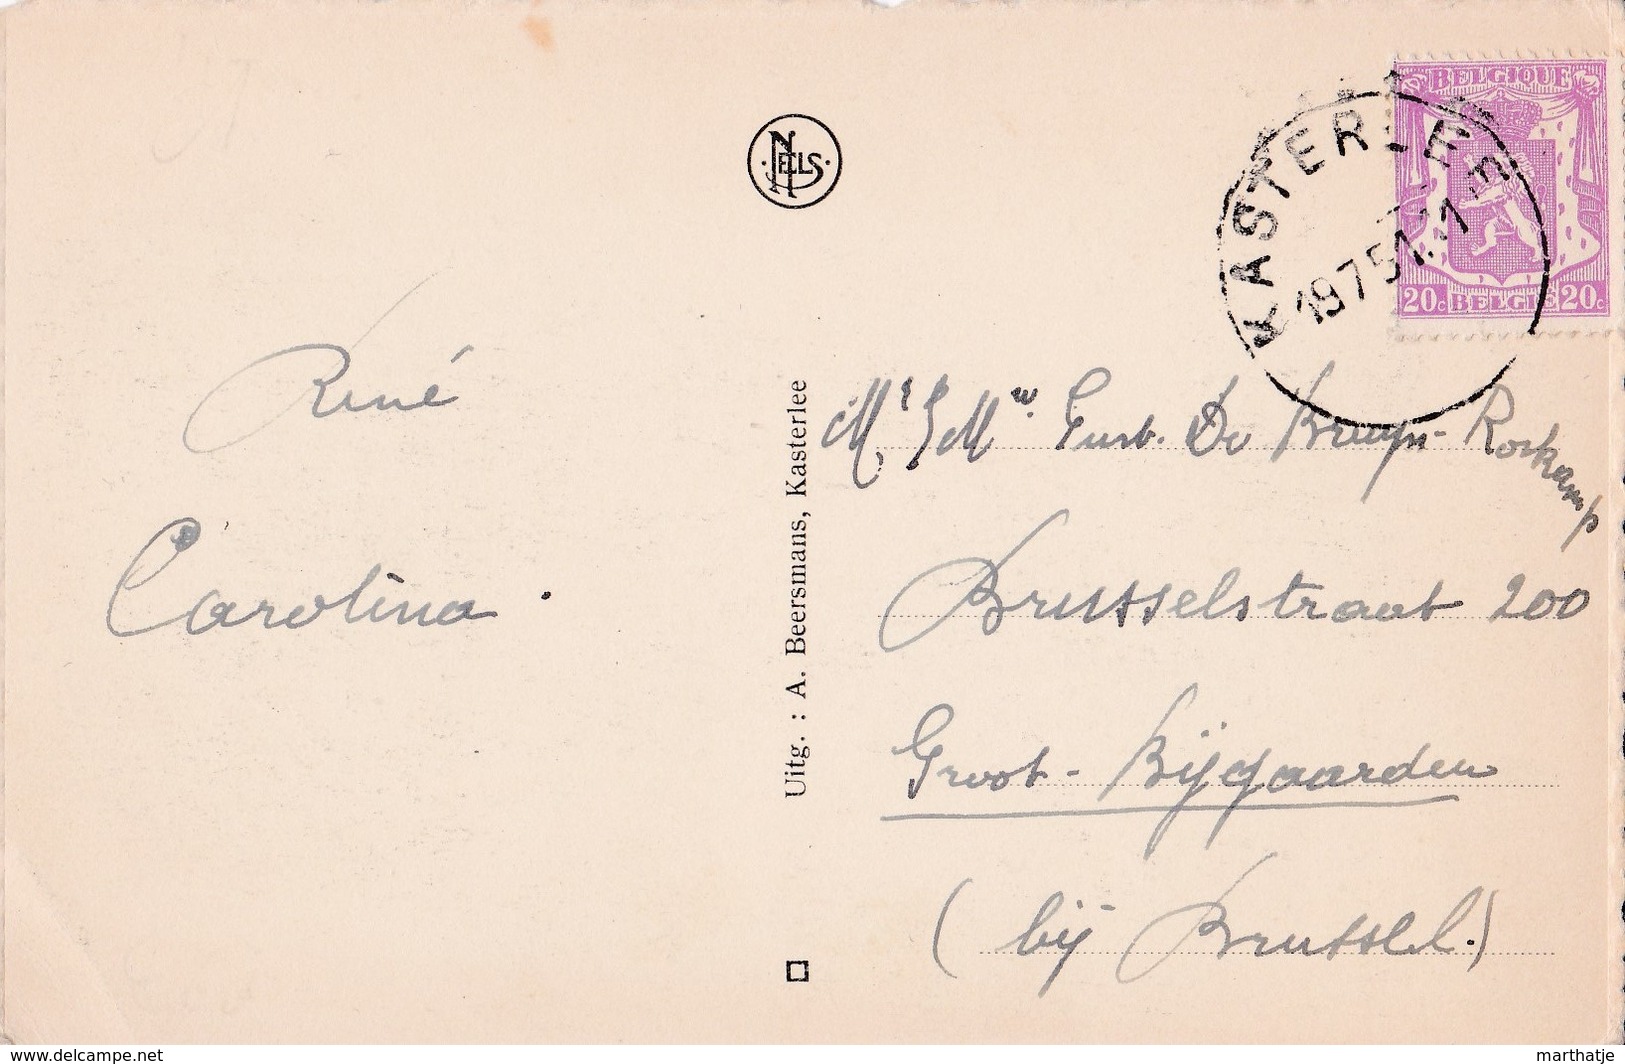 BELGIQUE
20c BELGIE 20c
KASTERLEE
NELS
René
Carolina.
Uitg. : A. Beersmans, Kasterlee
Mr & Mw. Gust. De Bruyn-Rockamp
Brusselstraat 200
Groot-Bijgaarden
(bij Brussel.)
www.delcampe.net
marthatje